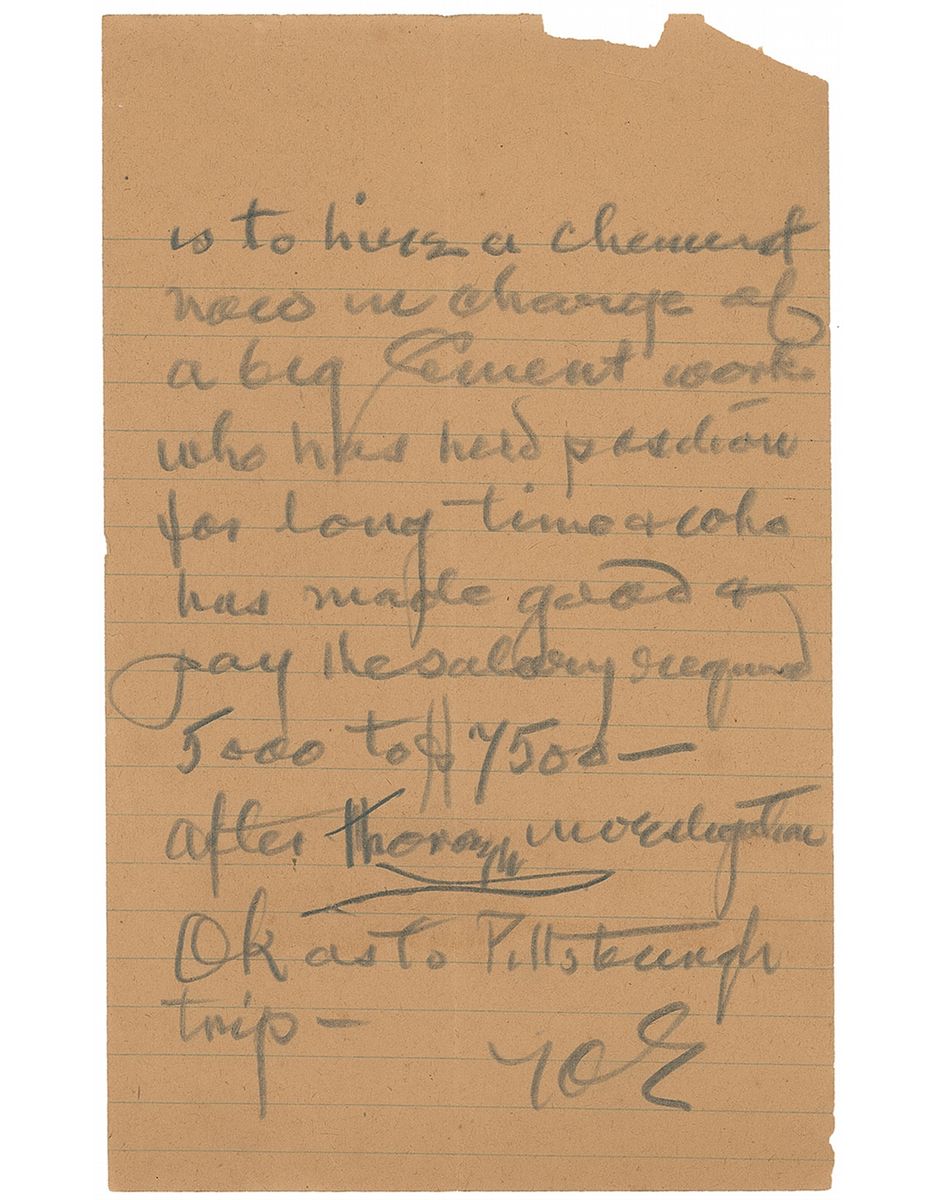 is to hire a chemist
now in charge of
a big Cement work
who has held position
for long time & who
has made good &
pay the salary required
5000 to $7500—
after thorough investigation
Ok as to Pittsburgh
trip—
TAE